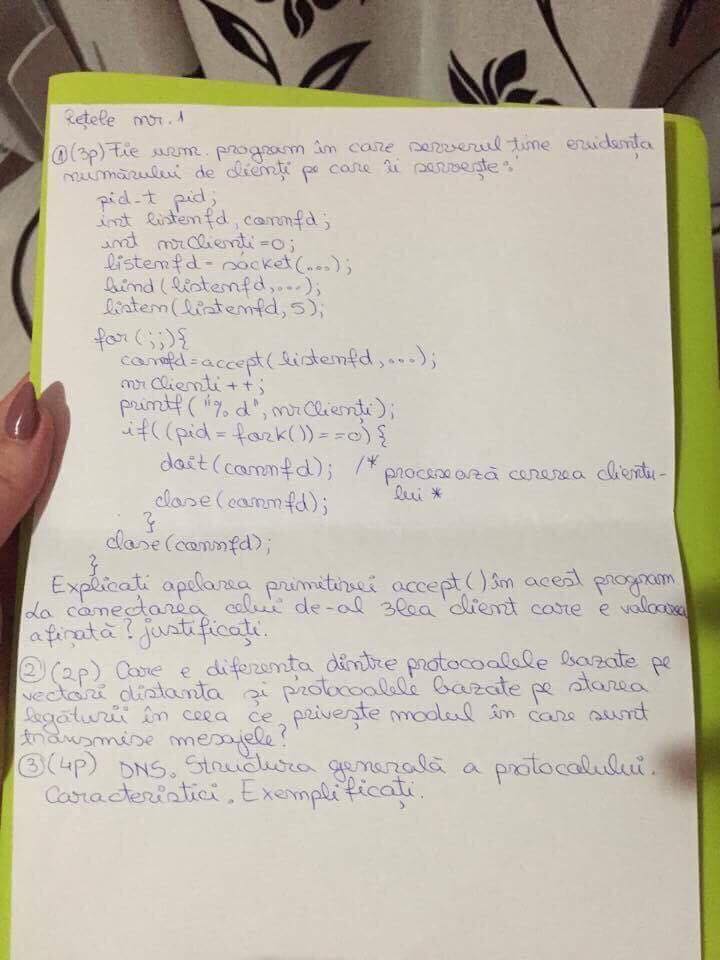 Rețele nr. 1
① (3p) Fie urm. program în care serverul ține evidența
numărului de clienți pe care îi servește:
pid_t pid;
int listenfd, connfd;
int nrClienti=0;
listenfd=socket(...);
bind(listenfd,...);
listen(listenfd,5);
for(;;){
connfd=accept(listenfd,...);
nrClienti++;
printf("%d",nrClienți);
if((pid=fork())==0){
doit(connfd); /* procesează cererea clientu-
lui *
close(connfd);
}
close(connfd);
}
Explicati apelarea primitivei accept() în acest program
La conectarea celui de-al 3lea client care e valoarea
afișată? Justificați.
② (2p) Care e diferența dintre protocoalele bazate pe
vectori distanta și protocoalele bazate pe starea
legăturii în ceea ce privește modul în care sunt
transmise mesajele?
③ (4p) DNS. Structura generală a protocolului.
Caracteristici. Exemplificați.